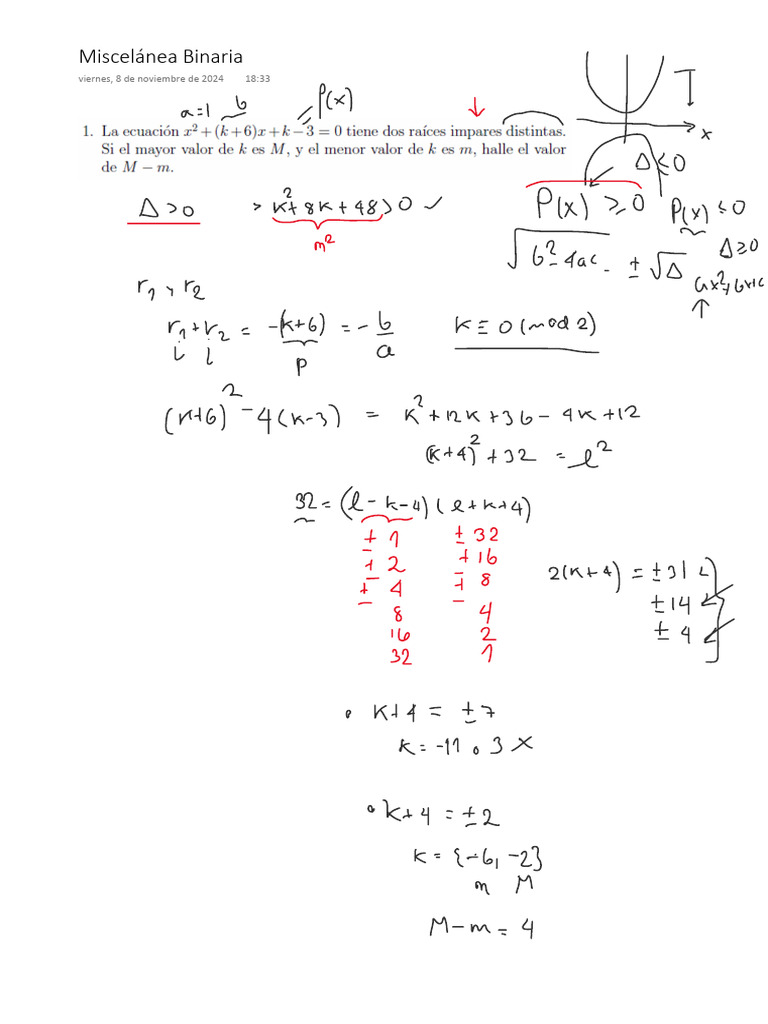 Miscelánea Binaria
viernes, 8 de noviembre de 2024 18:33
a=1 b = P(x)
1. La ecuación x² + (k + 6)x + k − 3 = 0 tiene dos raíces impares distintas.
Si el mayor valor de k es M, y el menor valor de k es m, halle el valor
de M − m.
x
Δ ≤ 0
Δ > 0 > k² + 8k + 48 > 0 ✓
m²
P(x) ≥ 0
P(x) ≤ 0
√b² - 4ac ± √Δ
Δ ≥ 0
ax² + bx + c
r₁ y r₂
r₁ + r₂ = -(k+6) = - b/a
i i P
k ≡ 0 (mod 2)
(k+6)² - 4(k-3) = k² + 12k + 36 - 4k + 12
(k+4)² + 32 = l²
32 = (l - k - 4)(l + k + 4)
± 1 ± 32
± 2 ± 16
± 4 ± 8
8 4
16 2
32 1
2(k+4) = ± 31
± 14
± 4
• k+4 = ± 7
k = -11 o 3 X
• k+4 = ± 2
k = {-6, -2}
m M
M - m = 4